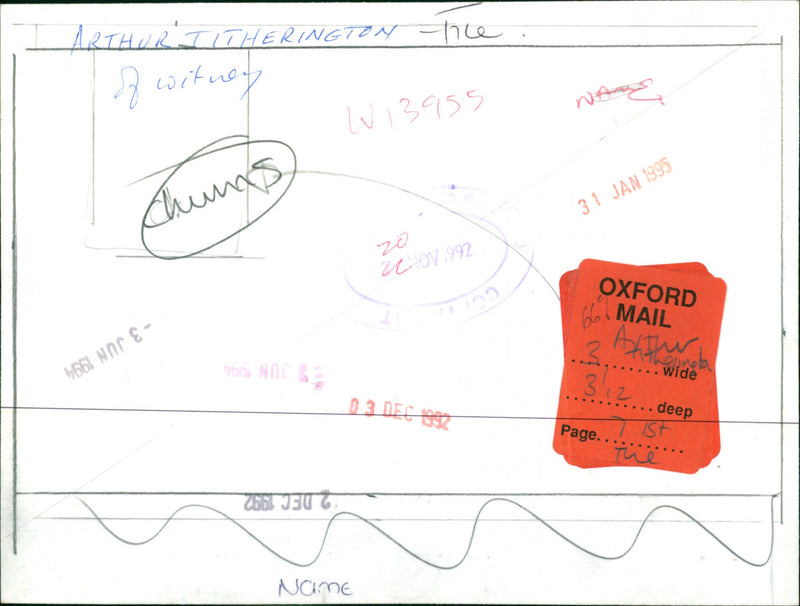 ARTHUR TITHERINGTON - File.
of witney
W13955
NAME
chums
31 JAN 1995
20
NOV 1992
- 3 JUN 1994
JUN 1994
03 DEC 1992
2 DEC 1992
OXFORD
MAIL
66%
Arthur
Titherington
3 wide
3 1/2 deep
Page 7 1st
The
Name